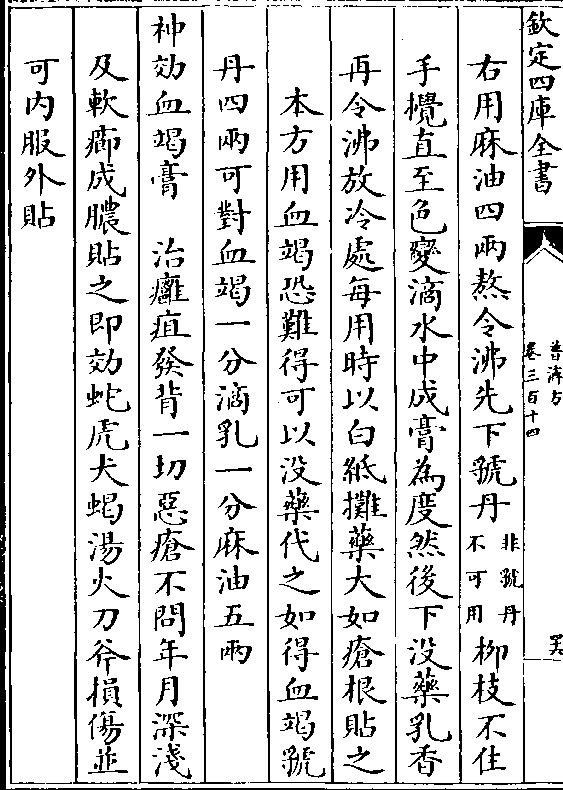 欽定四庫全書
普濟方
卷三百十四
右用麻油四兩熬令沸先下虢丹非虢丹不可用柳枝不住
手攪直至色變滴水中成膏為度然後下没藥乳香
再令沸放冷處每用時以白紙攤藥大如瘡根貼之
本方用血竭恐難得可以没藥代之如得血竭虢
丹四兩可對血竭一分滴乳一分麻油五兩
神効血竭膏　治癰疽發背一切惡瘡不問年月深淺
及軟癤成膿貼之即効蛇虎犬蝎湯火刀斧損傷並
可内服外貼